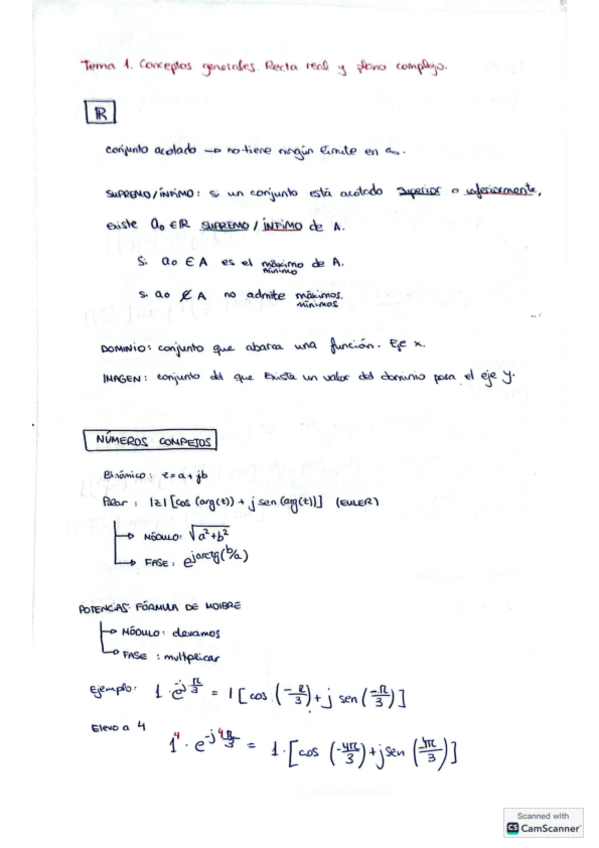 Tema 1. Conceptos generales. Recta real y plano complejo.
ℝ
conjunto acotado → no tiene ningún límite en ∞.
SUPREMO/ÍNFIMO: si un conjunto está acotado superior o inferiormente,
existe a₀ ∈ ℝ SUPREMO / ÍNFIMO de A.
Si a₀ ∈ A es el máximo de A.
mínimo
si a₀ ∉ A no admite máximos.
mínimos
DOMINIO: conjunto que abarca una función. Eje x.
IMAGEN: conjunto del que existe un valor del dominio para el eje y.
NÚMEROS COMPEJOS
Binómico: z = a + jb
Polar: |z| [cos (arg(z)) + j sen (arg(z))] (EULER)
→ MÓDULO: √a²+b²
→ FASE: e^jarctg(b/a)
POTENCIAS: FÓRMULA DE MOIBRE
→ MÓDULO: elevamos
→ FASE: multiplicar
Ejemplo: 1 · e^-j π/3 = 1 [cos (-π/3) + j sen (-π/3)]
Elevo a 4
1⁴ · e^-j 4π/3 = 1 · [cos (-4π/3) + j sen (-4π/3)]
Scanned with
CS CamScanner